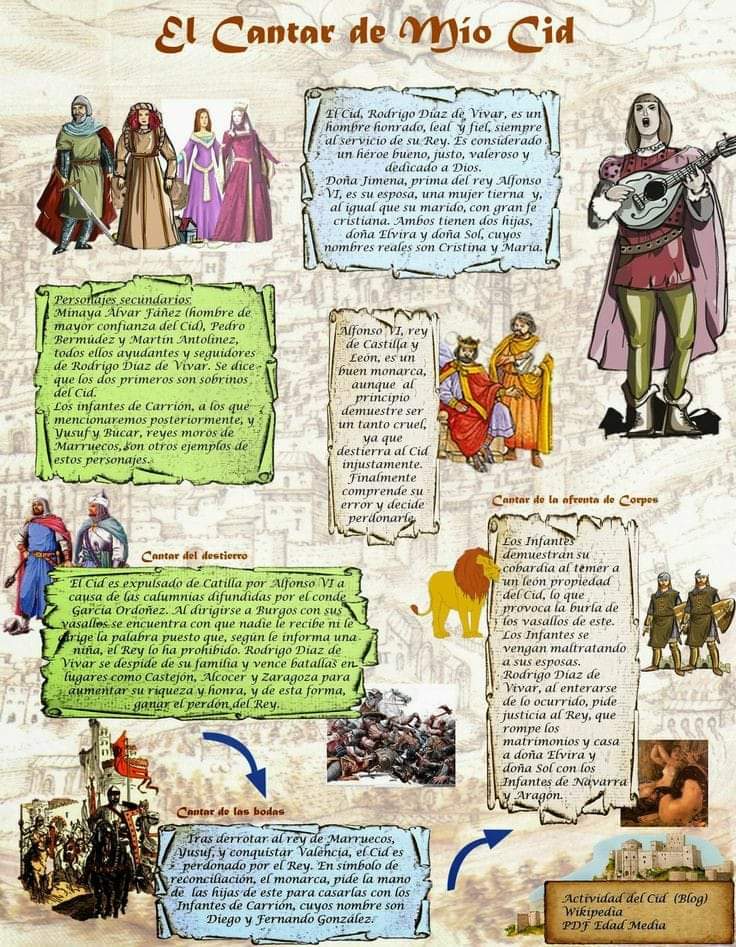 El Cantar de Mío Cid
El Cid, Rodrigo Díaz de Vivar, es un
hombre honrado, leal y fiel, siempre
al servicio de su Rey. Es considerado
un héroe bueno, justo, valeroso y
dedicado a Dios.
Doña Jimena, prima del rey Alfonso
VI, es su esposa, una mujer tierna y,
al igual que su marido, con gran fe
cristiana. Ambos tienen dos hijas,
doña Elvira y doña Sol, cuyos
nombres reales son Cristina y María.
Personajes secundarios
Minaya Álvar Fáñez (hombre de
mayor confianza del Cid), Pedro
Bermúdez y Martín Antolínez,
todos ellos ayudantes y seguidores
de Rodrigo Díaz de Vivar. Se dice
que los dos primeros son sobrinos
del Cid.
Los infantes de Carrión, a los que
mencionaremos posteriormente, y
Yusuf y Búcar, reyes moros de
Marruecos, son otros ejemplos de
estos personajes.
Alfonso VI, rey
de Castilla y
León, es un
buen monarca,
aunque al
principio
demuestre ser
un tanto cruel,
ya que
destierra al Cid
injustamente.
Finalmente
comprende su
error y decide
perdonarle.
Cantar del destierro
El Cid es expulsado de Catilla por Alfonso VI a
causa de las calumnias difundidas por el conde
García Ordoñez. Al dirigirse a Burgos con sus
vasallos se encuentra con que nadie le recibe ni le
dirige la palabra puesto que, según le informa una
niña, el Rey lo ha prohibido. Rodrigo Díaz de
Vivar se despide de su familia y vence batallas en
lugares como Castejón, Alcocer y Zaragoza para
aumentar su riqueza y honra, y de esta forma,
ganar el perdón del Rey.
Cantar de las bodas
Tras derrotar al rey de Marruecos,
Yusuf, y conquistar Valencia, el Cid es
perdonado por el Rey. En símbolo de
reconciliación, el monarca, pide la mano
de las hijas de este para casarlas con los
Infantes de Carrión, cuyos nombre son
Diego y Fernando González.
Cantar de la afrenta de Corpes
Los Infantes
demuestran su
cobardía al temer a
un león propiedad
del Cid, lo que
provoca la burla de
los vasallos de este.
Los Infantes se
vengan maltratando
a sus esposas.
Rodrigo Díaz de
Vivar, al enterarse
de lo ocurrido, pide
justicia al Rey, que
rompe los
matrimonios y casa
a doña Elvira y
doña Sol con los
Infantes de Navarra
y Aragón.
Actividad del Cid (Blog)
Wikipedia
PDF Edad Media